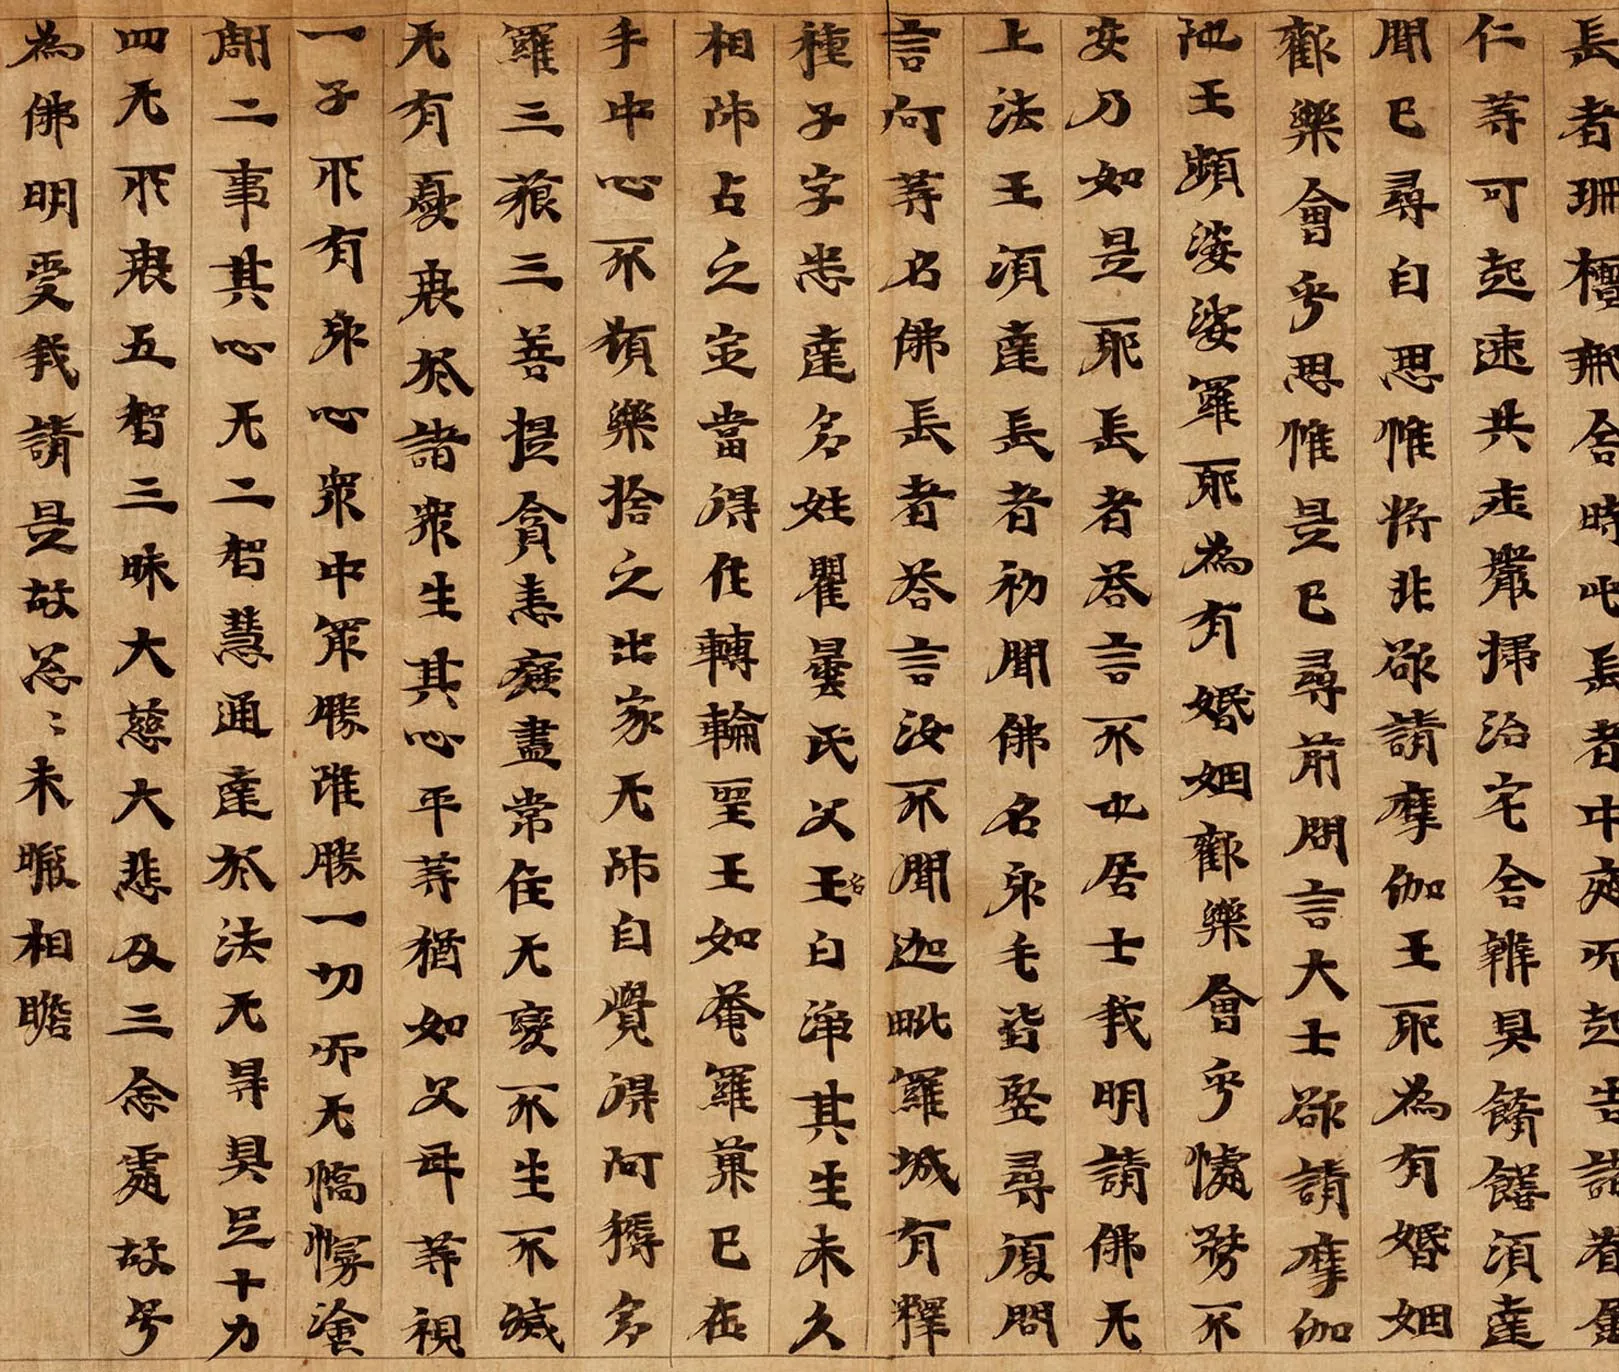 長者珊檀郍舍時此長者中夜而起告諸眷屬
仁等可起速共庄嚴掃治宅舍辦具餚饍須達
聞已尋自思惟將非欲請摩伽王耶為有婚姻
歡樂會乎思惟是已尋前問言大士欲請摩伽
陁王頻婆娑羅耶為有婚姻歡樂會乎憁務不
安乃如是耶長者荅言不也居士我明請佛无
上法王須達長者初聞佛名身毛皆竪尋復問
言何等名佛長者荅言汝不聞迦毗羅城有釋
種子字悉達多姓瞿曇氏父王名白淨其生未久
相師占之定當得作轉輪聖王如菴羅菓已在
手中心不願樂捨之出家无師自覺得阿耨多
羅三藐三菩提貪恚癡盡常住无變不生不滅
无有憂畏於諸衆生其心平等猶如父母等視
一子所有身心衆中㝡勝雖勝一切而无憍慢塗
割二事其心无二智慧通達於法无㝵具足十力
四无所畏五智三昧大慈大悲及三念處故号
為佛明受我請是故怱〻未暇相瞻